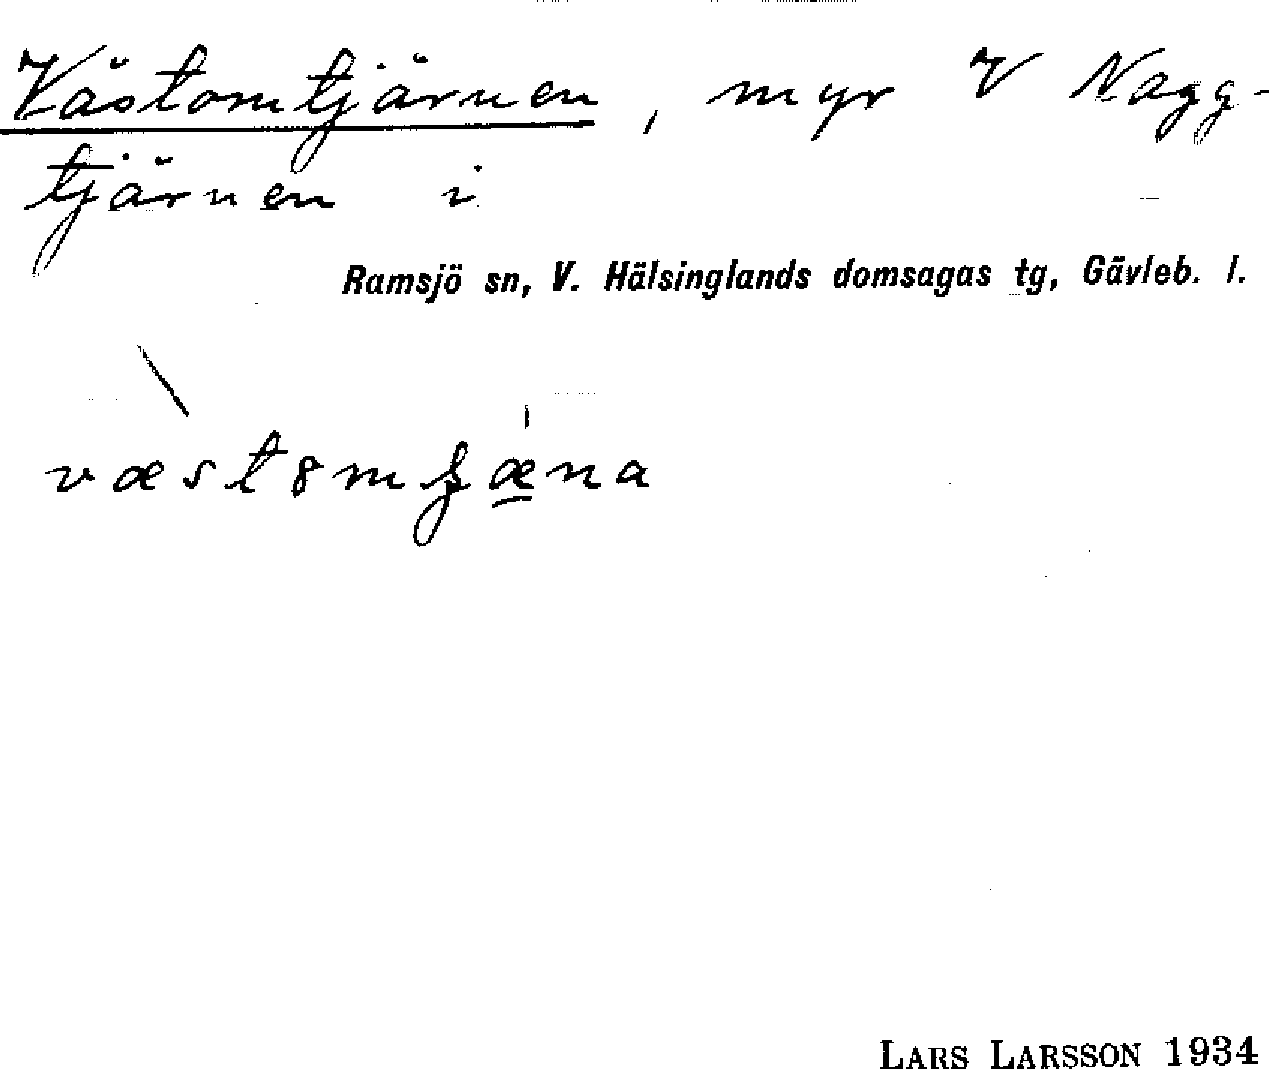 Västomtjärnen, myr V Nagg-
tjärnen i
Ramsjö sn, V. Hälsinglands domsagas tg, Gävleb. l.
LARS LARSSON 1934